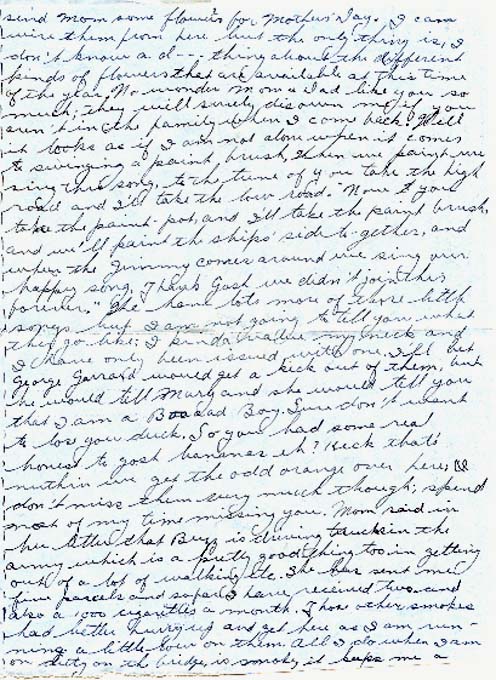 send Mom some flowers for Mother's Day. I can
wire them from here but the only thing is, I
don't know a d--- thing about the different
kinds of flowers that are available at this time
of the year. No wonder Mom & Dad like you so
much; they will surely disown me if you
aren't in the family when I come back! Well
it looks as if I am not alone when it comes
to swinging a paint brush, when we paint we
sing this song, to the tune of you take the high
road and I'll take the low road. "Now I you
take the paint-pot, and I'll take the paint brush,
and we'll paint the ships' side to-gether, and
when the Jimmy comes around we sing our
happy song, Thank Gosh we didn't join this
forever." We have lots more of those little
songs but I am not going to tell you what
they go like; I kinda value my neck and
I have only been issued with one. I'll bet
George Garrard would get a kick out of them, but
he would tell Mary and she would tell you
that I am a Baaaad Boy. Sure don't want
to lose you duck. So you had some real
honest to gosh bananas eh? Heck that's
nuthin we get the odd orange over here, I
don't miss them very much though; spend
most of my time missing you. Mom said in
her letter that Buzz is driving trucks in the
army which is a pretty good thing too in getting
out of a lot of walking etc. She has sent me
four parcels and so far I have received two. and
also a 1000 cigarettes a month. Those other smokes
had better hurry up and get here as I am run-
ning a little low on them. All I do when I am
on duty on the bridge is smoke, it keeps me a